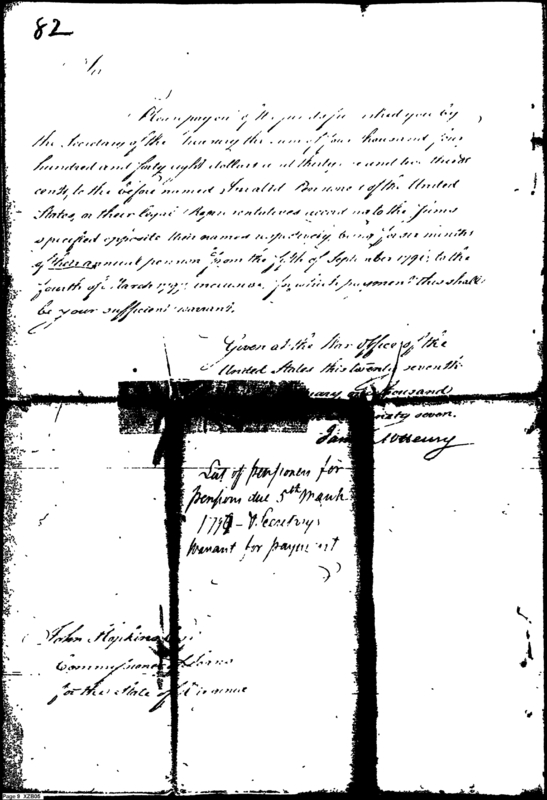 82
Sir
Please pay out of the you by
the Secretary of the Treasury the sum of four thousand four
hundred and forty eight dollars and thirty and two thirds
cents, to the before named Invalid Pensioners of the United
States, or their legal Representatives according to the sums
specified opposite their names respectively, being for six months
of their annual pension from the fifth of September 1796 to the
fourth of March 1797 inclusive, for which payment this shall
be your sufficient warrant.
Given at the War office of the
United States this twenty seventh
thousand
ninety seven.
James McHenry
List of pensioners for
pensions due 5th March
179 Secretarys
warrant for payment
John Hopkins Esqr
Commissioner of Loans
for the State of Virginia
Page 9 XZB05